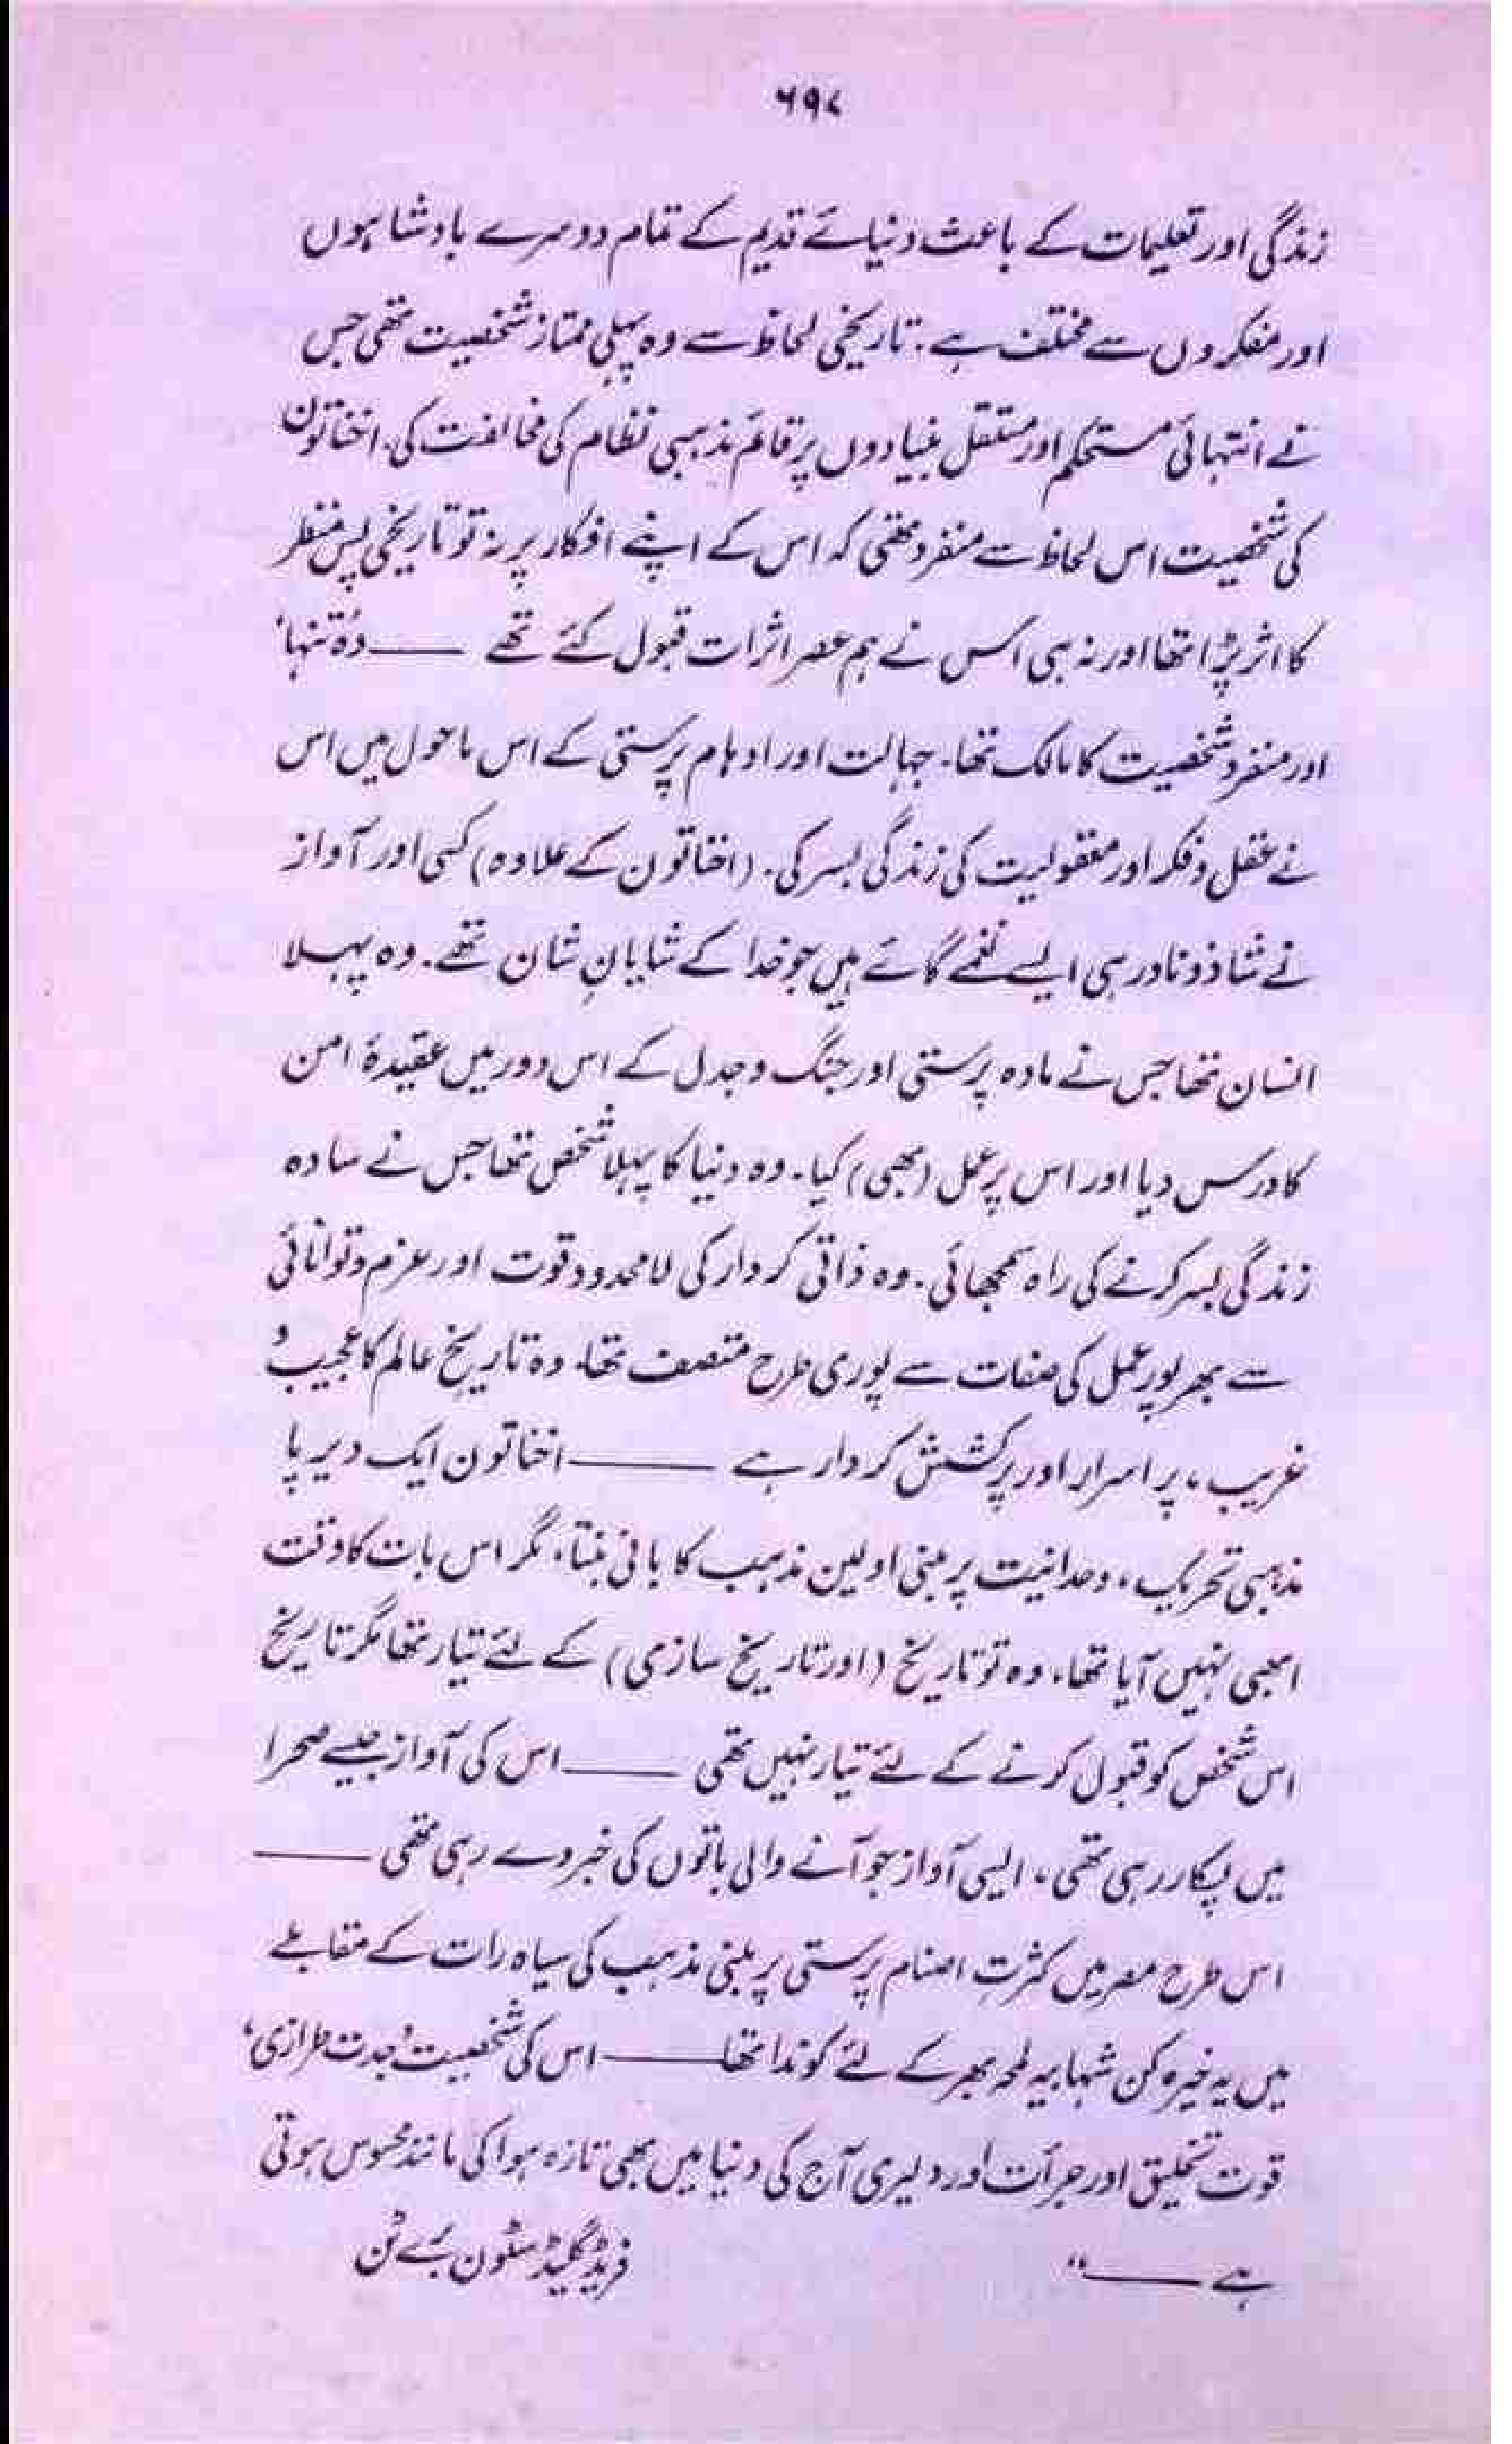 ۶۹۷
زندگی اور تعلیمات کے باعث دنیائے قدیم کے تمام دوسرے بادشاہوں
اور مفکروں سے مختلف ہے۔ تاریخی لحاظ سے وہ پہلی ممتاز شخصیت تھی جس
نے انتہائی مستحکم اور مستقل بنیادوں پر قائم مذہبی نظام کی مخالفت کی۔ اخناتون
کی شخصیت اس لحاظ سے منفرد تھی کہ اس کے اپنے افکار پر نہ تو تاریخی پس منظر
کا اثر پڑا تھا اور نہ ہی اس نے ہم عصر اثرات قبول کئے تھے ــــــ وہ تنہا،
اور منفرد شخصیت کا مالک تھا۔ جہالت اور اوہام پرستی کے اس ماحول میں اس
نے عقل و فکر اور معقولیت کی زندگی بسر کی۔ (اخناتون کے علاوہ) کسی اور آواز
نے شاذ و نادر ہی ایسے نغمے گائے ہیں جو خدا کے شایانِ شان تھے۔ وہ پہلا
انسان تھا جس نے مادہ پرستی اور جنگ و جدل کے اس دور میں عقیدۂ امن
کا درس دیا اور اس پر عمل (بھی) کیا۔ وہ دنیا کا پہلا شخص تھا جس نے سادہ
زندگی بسر کرنے کی راہ سمجھائی۔ وہ ذاتی کردار کی لامحدود قوت اور عزم و توانائی
سے بھرپور عمل کی صفات سے پوری طرح متصف تھا۔ وہ تاریخِ عالم کا عجیب و
غریب، پراسرار اور پرکشش کردار ہے ــــــ اخناتون ایک دیرپا
مذہبی تحریک، وحدانیت پر مبنی اولین مذہب کا بانی بنتا، مگر اس بات کا وقت
ابھی نہیں آیا تھا، وہ تو تاریخ (اور تاریخ سازی) کے لئے تیار تھا مگر تاریخ
اس شخص کو قبول کرنے کے لئے تیار نہیں تھی ــــــ اس کی آواز جیسے صحرا
میں پکار رہی تھی، ایسی آواز جو آنے والی باتوں کی خبر دے رہی تھی ــــــ
اس طرح مصر میں کثرتِ اصنام پرستی پر مبنی مذہب کی سیاہ رات کے مقابلے
میں یہ خیرہ کن شہابیہ لمحہ بھر کے لئے کوندا تھا ــــــ اس کی شخصیت و جدت طرازی،
قوت تخلیق اور جرأت اور دلیری آج کی دنیا میں بھی تازہ ہوا کی مانند محسوس ہوتی
ہے ــــــ"
فریڈ گلیڈسٹون بے ٹن